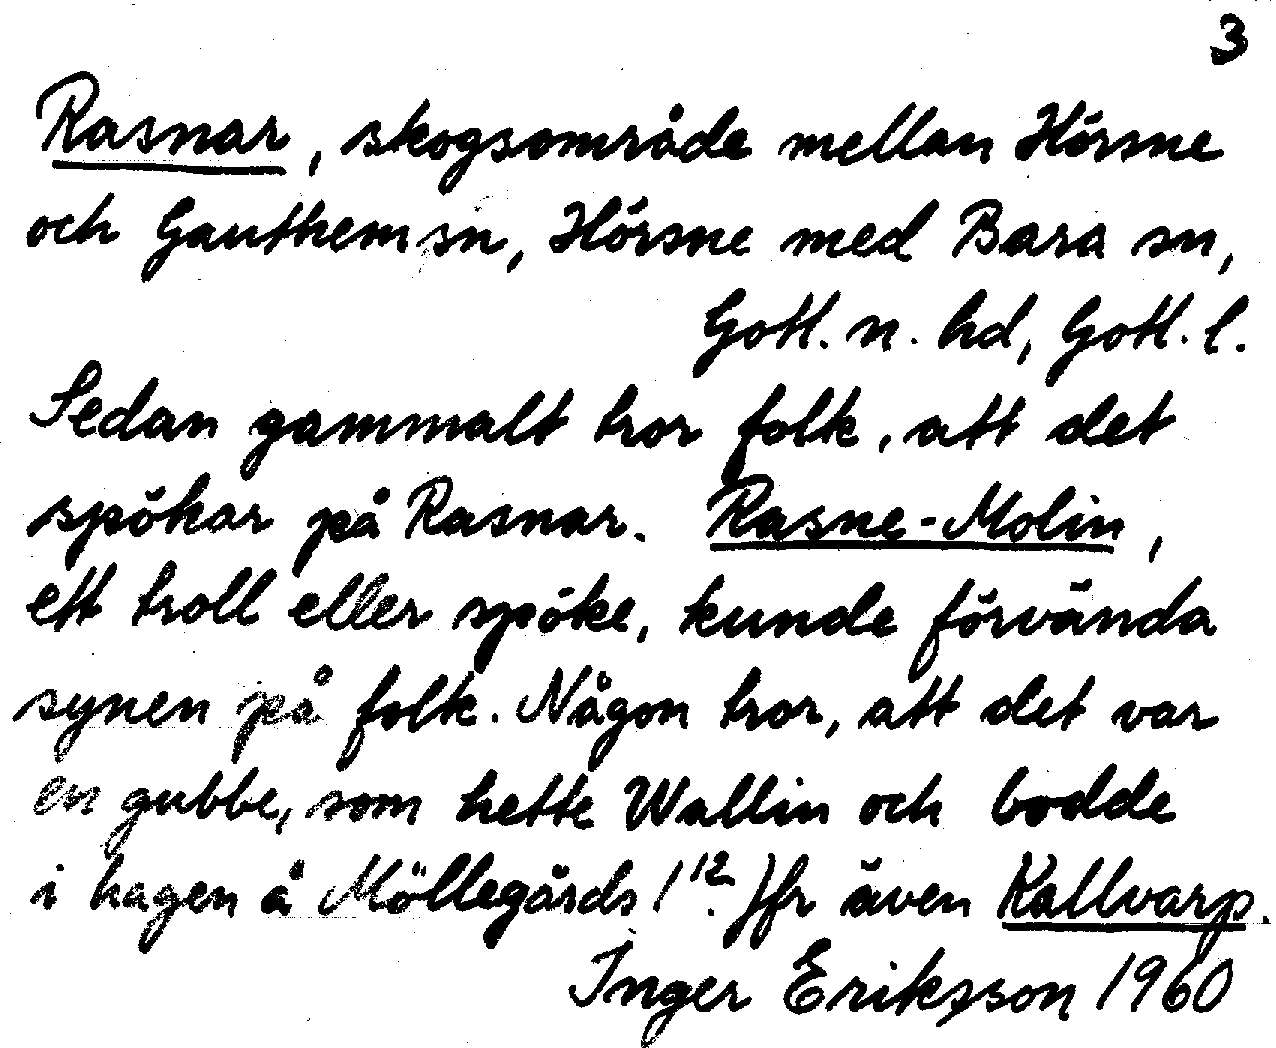 3
Rasnar, skogsområde mellan Hörsne
och Ganthem sn, Hörsne med Bara sn,
Gotl. n. hd, Gotl. l.
Sedan gammalt tror folk, att det
spökar på Rasnar. Rasne-Molin,
ett troll eller spöke, kunde förvända
synen på folk. Någon tror, att det var
en gubbe, som hette Wallin och bodde
i hagen å Möllegårds 1¹². Jfr även Kallvarp.
Inger Eriksson 1960